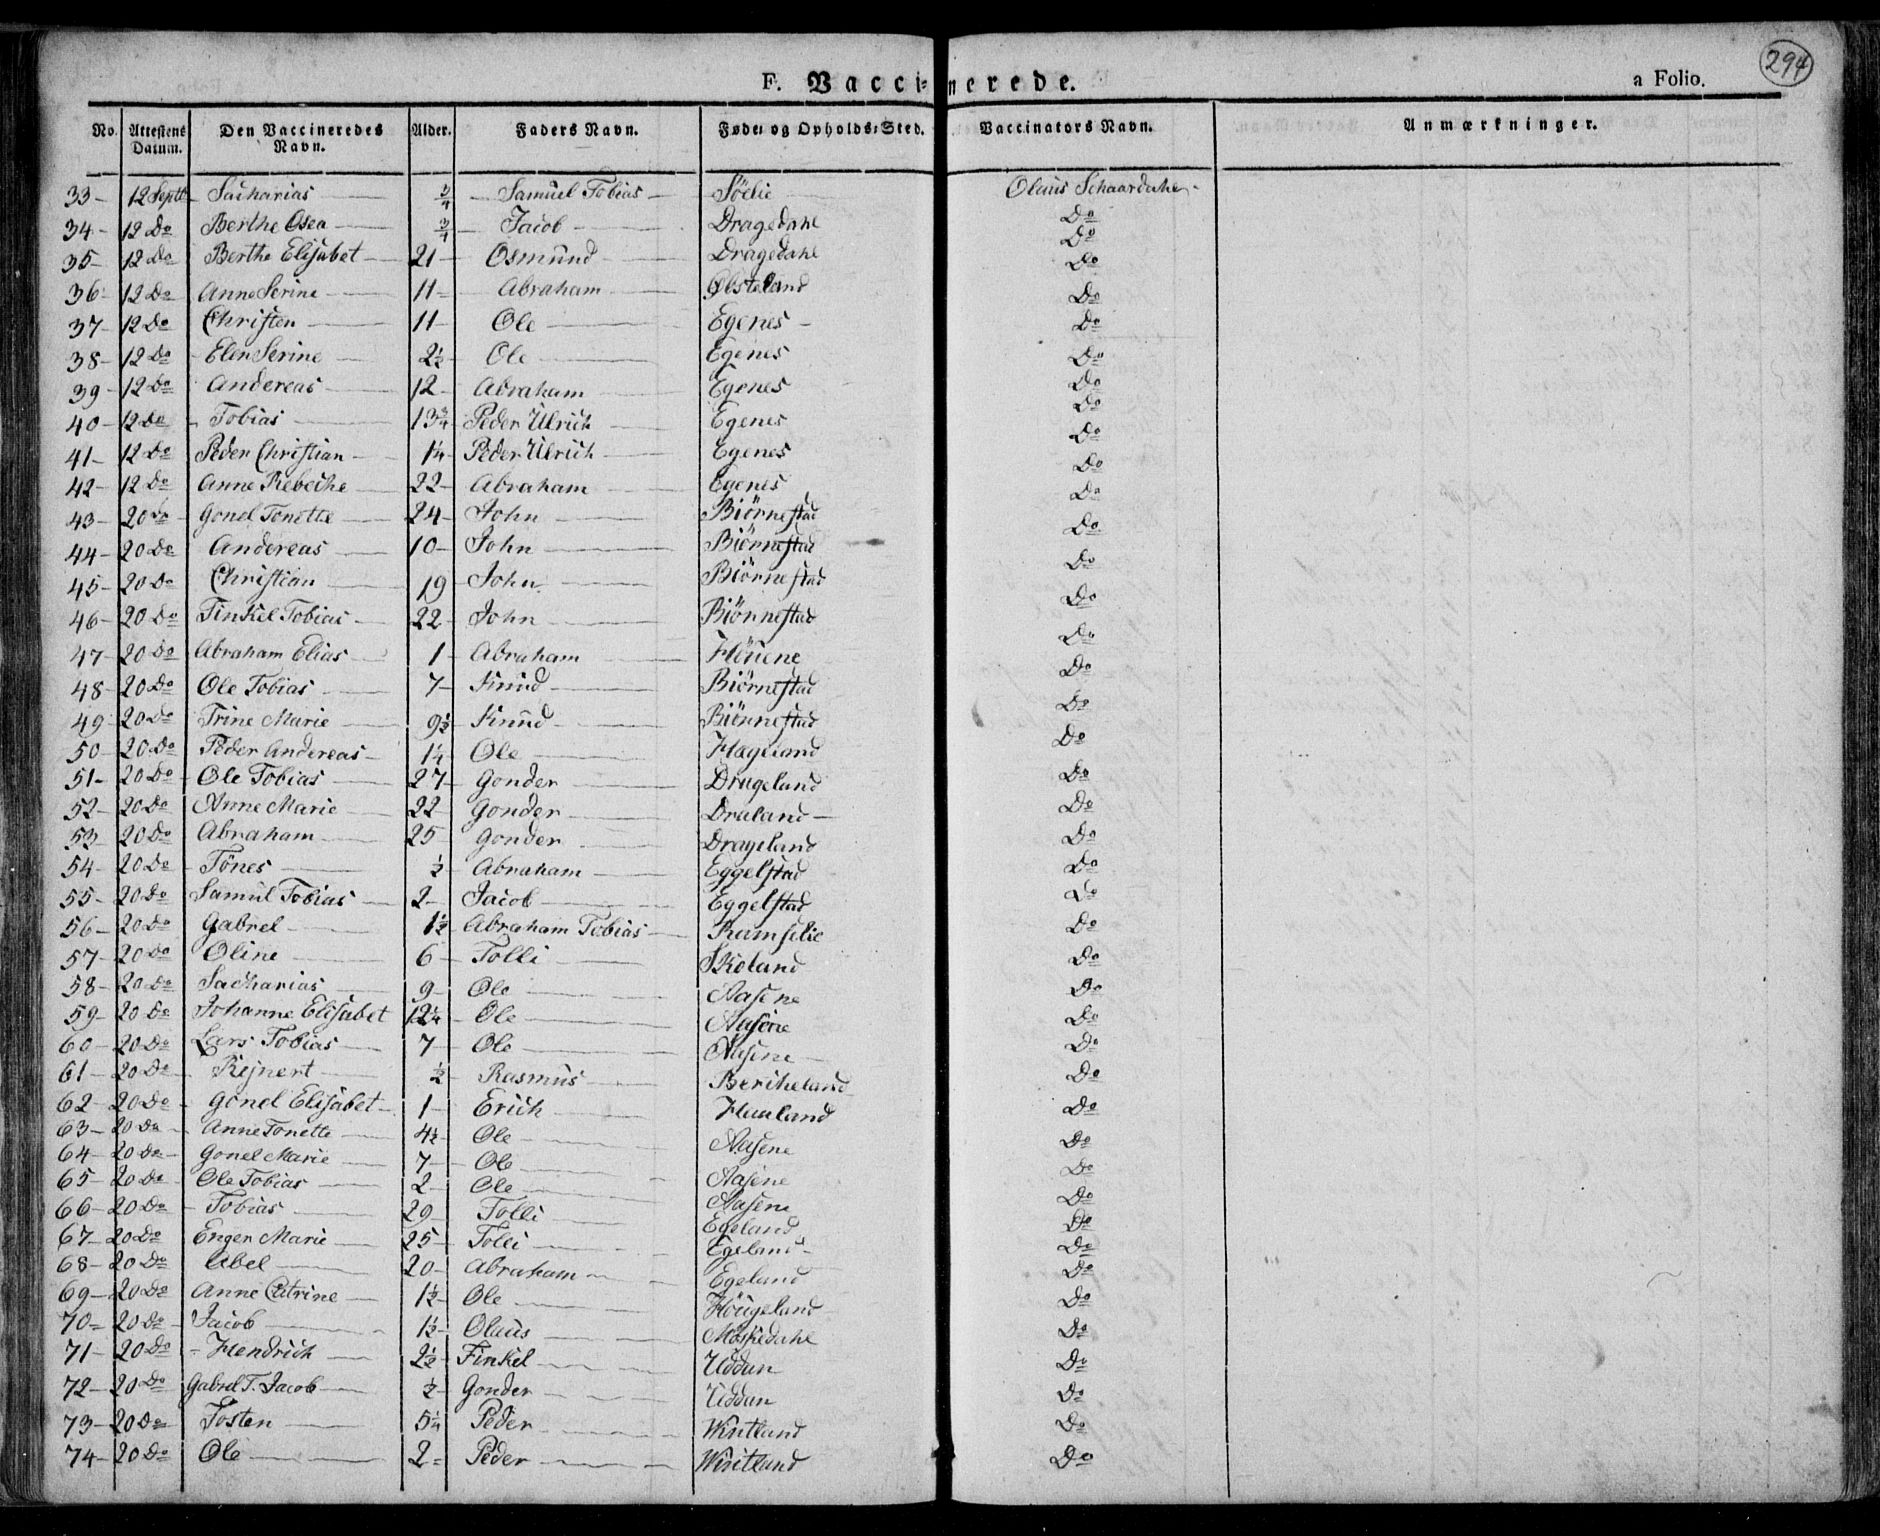 294
F. Vaccinerede. a Folio.
No. Attestens Datum. Den Vaccineredes Navn. Alder. Faders Navn. Føde- og Opholds-Sted. Vaccinators Navn. Anmærkninger.
33 - 12 Septb Sacharias 3/4 Samuel Tobias Sölie Olaus Schaardahl
34 - 12 Do Berthe Osea 3/4 Jacob Dragedahl Do
35 - 12 Do Berthe Elisabet 21 Osmund Dragedahl Do
36 - 12 Do Anne Serine 11 Abraham Øbsteland Do
37 - 12 Do Christen 11 Ole Egenes Do
38 - 12 Do Elen Serine 2 1/2 Ole Egenes Do
39 - 12 Do Andereas 12 Abraham Egenes Do
40 - 12 Do Tobias 13 3/4 Peder Ulrich Egenes Do
41 - 12 Do Peder Christian 1 1/4 Peder Ulrich Egenes Do
42 - 12 Do Anne Rebeche 22 Abraham Egenes Do
43 - 20 Do Gonel Tonette 24 John Biörnestad Do
44 - 20 Do Andereas 10 John Biörnestad Do
45 - 20 Do Christian 19 John Biörnestad Do
46 - 20 Do Finkel Tobias 22 John Biörnestad Do
47 - 20 Do Abraham Elias 1 Abraham Do
48 - 20 Do Ole Tobias 7 Knud Biörnestad Do
49 - 20 Do Trine Marie 9 1/2 Knud Biörnestad Do
50 - 20 Do Peder Andereas 1 1/4 Ole Hageland Do
51 - 20 Do Ole Tobias 27 Gonder Drageland Do
52 - 20 Do Anne Marie 22 Gonder Draland Do
53 - 20 Do Abraham 25 Gonder Drageland Do
54 - 20 Do Tönes 1/2 Abraham Eggelstad Do
55 - 20 Do Samul Tobias 2 Jacob Eggelstad Do
56 - 20 Do Gabrel 1 1/2 Abraham Tobias Ramselie Do
57 - 20 Do Oline 6 Tolli Skoland Do
58 - 20 Do Sacharias 9 Ole Aasene Do
59 - 20 Do Johanne Elisabet 12 1/4 Ole Aasene Do
60 - 20 Do Lars Tobias 7 Ole Aasene Do
61 - 20 Do Rejnert 1/2 Rasmus Bericheland Do
62 - 20 Do Gonel Elisabet 1 Erich Hauland Do
63 - 20 Do Anne Tonette 4 1/2 Ole Aasene Do
64 - 20 Do Gonel Marie 7 Ole Aasene Do
65 - 20 Do Ole Tobias 2 Ole Aasene Do
66 - 20 Do Tobias 29 Tolli Egeland Do
67 - 20 Do Enger Marie 25 Tolli Egeland Do
68 - 20 Do Abel 20 Abraham Egeland Do
69 - 20 Do Anne Catrine 1 1/2 Ole Höugeland Do
70 - 20 Do Jacob 1 1/2 Olaus Moskedahl Do
71 - 20 Do Hendrich 2 1/2 Finkel Uddun Do
72 - 20 Do Gabrel T. Jacob 1/2 Gonder Uddun Do
73 - 20 Do Tosten 5 1/4 Peder Do
74 - 20 Do Ole 2 Peder Do